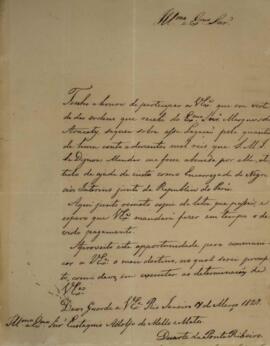 Illmo. e Exmo. Senr.
Tenho a honra de participar a V. Exa. que em virtu
de das ordens que recebi do Exmo. Snr. Marquez de
Aracaty, saquei sobre essa Legação pela quantia
de hum conto e duzentos mil reis que S. M. I.
Se Dignou Mandar me fosse abonada por
titulo de ajuda de custo como Encarregado de Nego
cios Interino junto da Republica do Perú.
Aqui junto remeto copia da Letra que passei, e
espero que V. Exa. mandará fazer em tempo o de
vido pagamento.
Aproveito esta opportunidade para communi
car a V. Exa. o meu destino, no qual serei prompto
como devo, em executar as determinações de
V. Exa.
Deos Guarde a V. Exa. Rio Janeiro de Março 1829.
Illmo. e Exmo. Snr. Eustaquio Adolfo de Mello e Mattos.
Duarte da Ponte Ribeiro